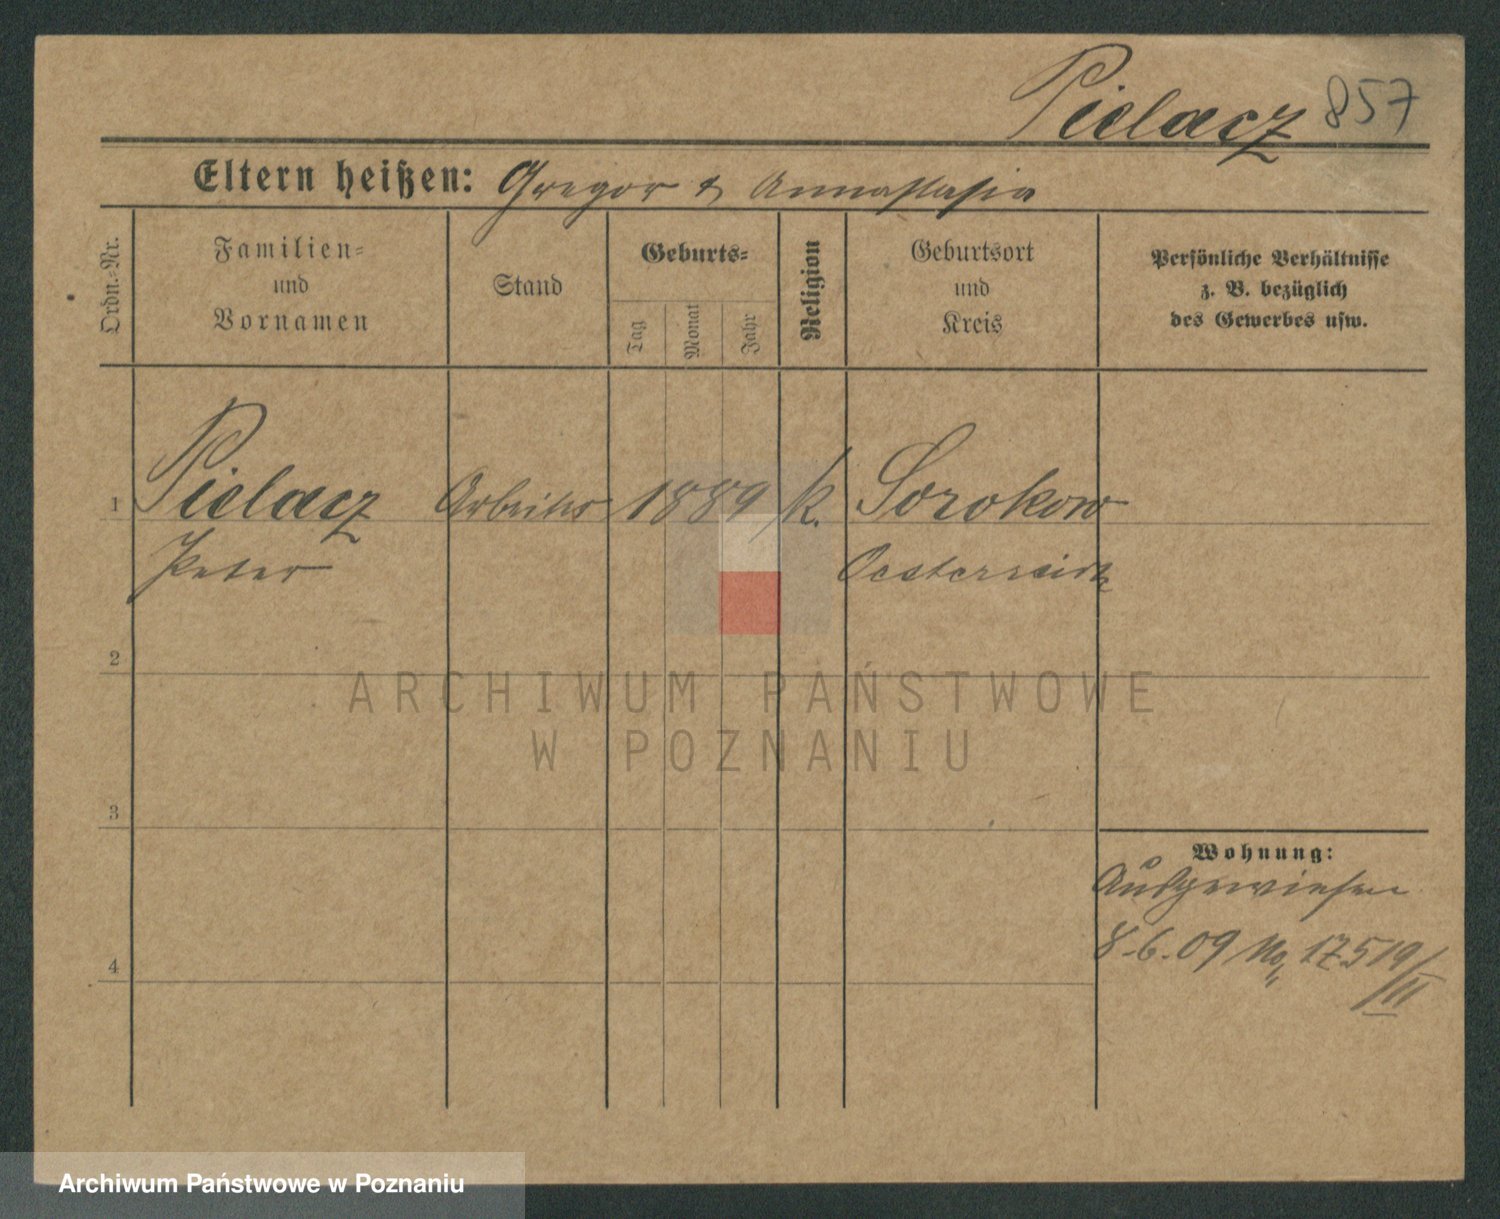 Pielacz 857
Eltern heißen: Gregor & Annastasia
Ordn.-Nr.
Familien-
und
Vornamen
Stand
Geburts-
Tag
Monat
Jahr
Religion
Geburtsort
und
Kreis
Persönliche Verhältnisse
z. B. bezüglich
des Gewerbes usw.
1 Pielacz Arbeiter 1889 k. Sorokow
Peter Oesterreich
2
ARCHIWUM PAŃSTWOWE
W POZNANIU
3
Wohnung:
Ausgewiesen
8.6.09 No. 17519/III
4
Archiwum Państwowe w Poznaniu